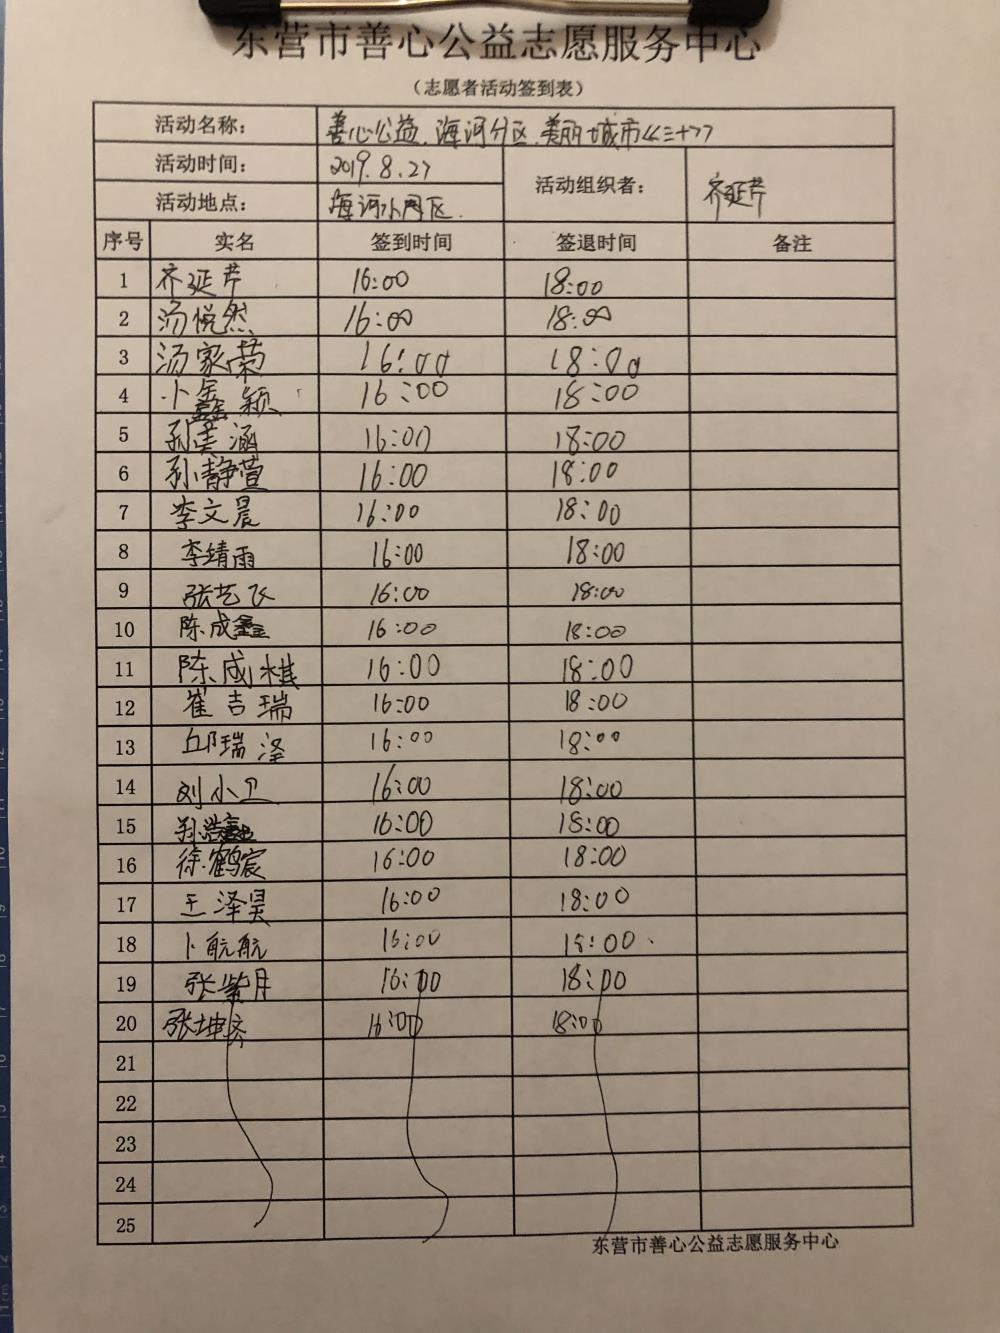 东营市善心公益志愿服务中心
（志愿者活动签到表）
活动名称： 善心公益.海河分区.美丽城市《三十》
活动时间： 2019.8.27
活动组织者： 齐延芹
活动地点： 海河小区.
序号 实名 签到时间 签退时间 备注
1 齐延芹 16:00 18:00
2 汤悦然 16:00 18:00
3 汤家荣 16:00 18:00
4 卜鑫颖 16:00 18:00
5 孙 涵 16:00 18:00
6 孙静萱 16:00 18:00
7 李文晨 16:00 18:00
8 李靖雨 16:00 18:00
9 张艺飞 16:00 18:00
10 陈成鑫 16:00 18:00
11 陈成棋 16:00 18:00
12 崔吉瑞 16:00 18:00
13 邱瑞泽 16:00 18:00
14 刘小卫 16:00 18:00
15 孙浩 16:00 18:00
16 徐鹤宸 16:00 18:00
17 王泽昊 16:00 18:00
18 卜航航 16:00 18:00.
19 张紫月 16:00 18:00
20 张坤 16:00 18:00
21
22
23
24
25
东营市善心公益志愿服务中心